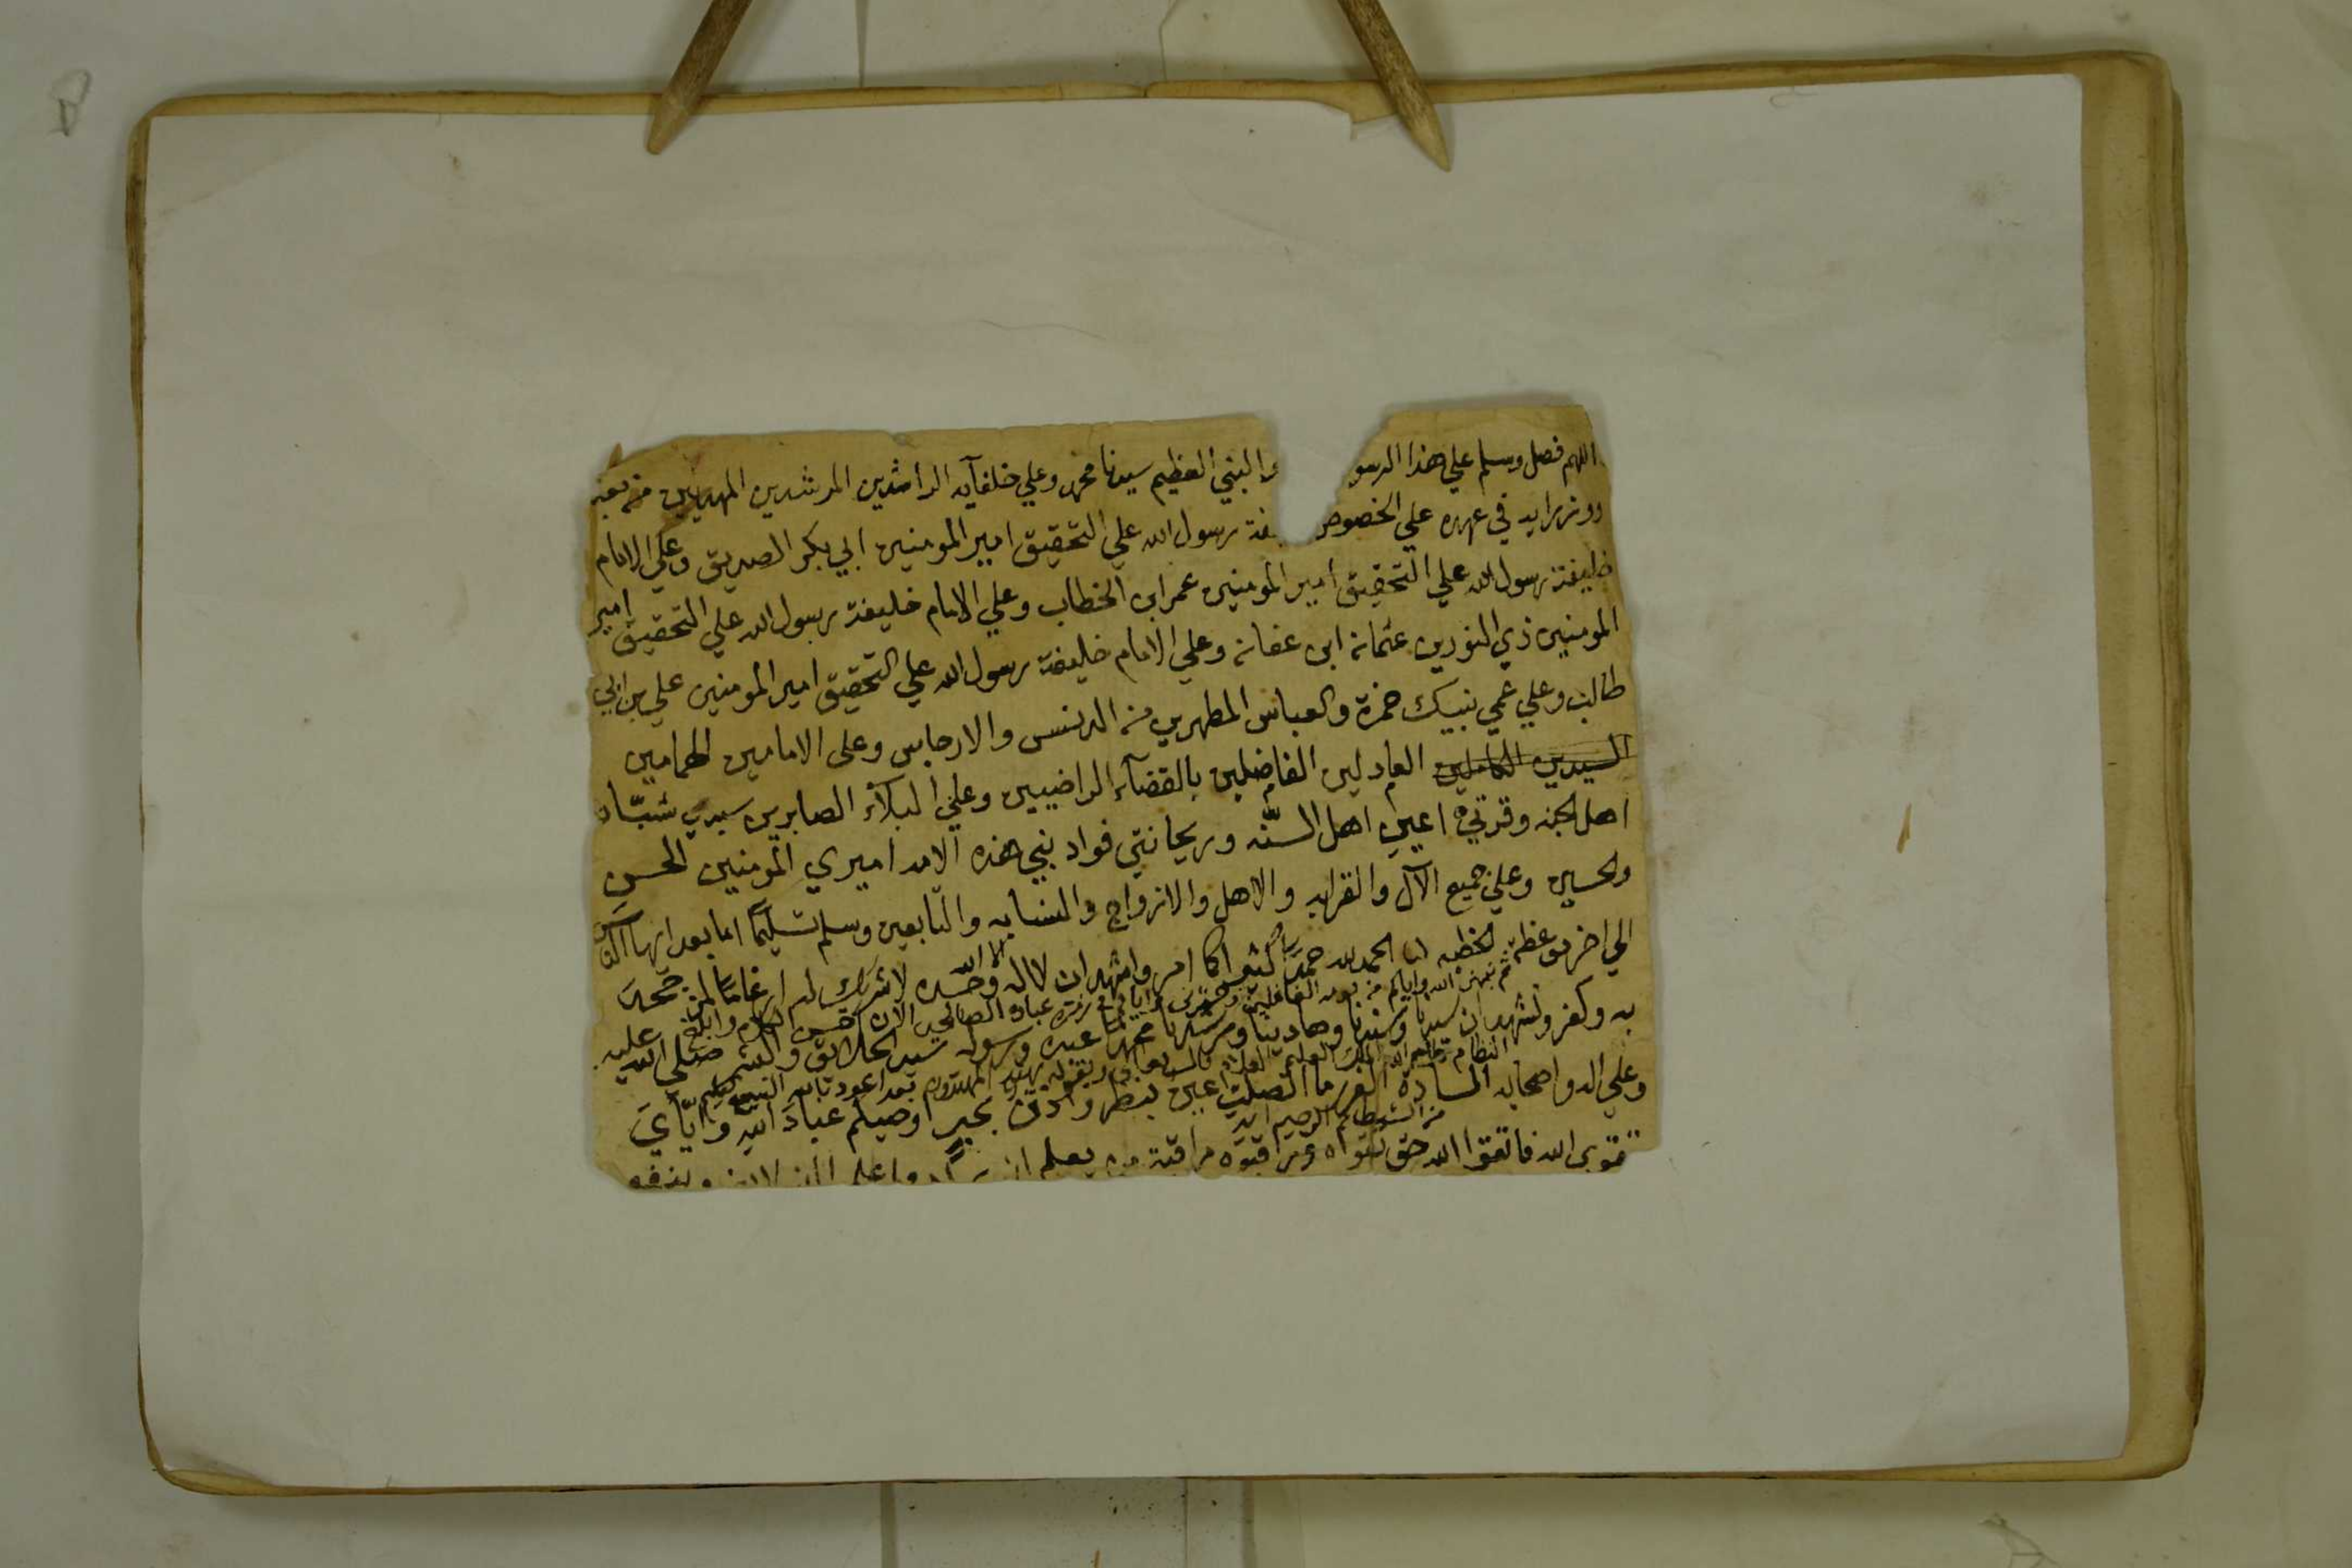 اللهم فصل وسلم علي هذا الرسو والنبي العظيم سيدنا محمد وعلي خلفآيه الراشدين المرشدين المهديين من بعده
ووزرايه في عهده علي الخصوص يفة رسول الله علي التحقيق امير المومنين ابي بكر الصديق وعلي الامام
خليفة رسول الله علي التحقيق امير المومنين عمر ابن الخطاب وعلي الامام خليفة رسول الله علي التحقيق امير
المومنين ذي النورين عثمان ابن عفان وعلي الامام خليفة رسول الله علي التحقيق امير المومنين علي بن ابي
طالب وعلي عمي نبيك حمزة والعباس المطهرين من الدنس والارجاس وعلى الامامين الهمامين
السيدين الكاملين العادلين الفاضلين بالقضآء الراضيين وعلي البلآء الصابرين سيدي شبّاب
اهل الجنه وقرتي اعين اهل السنّه وريحانتي فواد نبي هذه الامه اميري المومنين الحسن
والحسين وعلي جميع الآل والقرابه والاهل والازواج والصحابه والتابعين وسلم تسليمًا اما بعد ايها الناس
الي اخر موعظة الخطبه الحمد لله حمدًا كثيرا كما امر واشهد ان لا اله الا الله وحده لا شريك له ارغامًا لمن جحد
ثم نبهنا الله واياكم من نومة الغافلين وحشرنى واياكم في زمرة عباده الصالحين الان احسن الكلام وابلغ
به وكفر ونشهد ان سيدنا وسندنا وهادينا ومرشدنا محمدًا عبده ورسوله سيد الخلايق والبشر صلي الله عليه
النظام كلام الله الملك العليم العلام
وعلي اله واصحابه السادة الغرر ما اتصلت عين بنظر واذن بخبر اوصيكم عباد الله وايّايَ
من الشيطان الرجيم
بتقوى الله فاتقوا الله حق تقواه وراقبوه مراقبة من يعلم